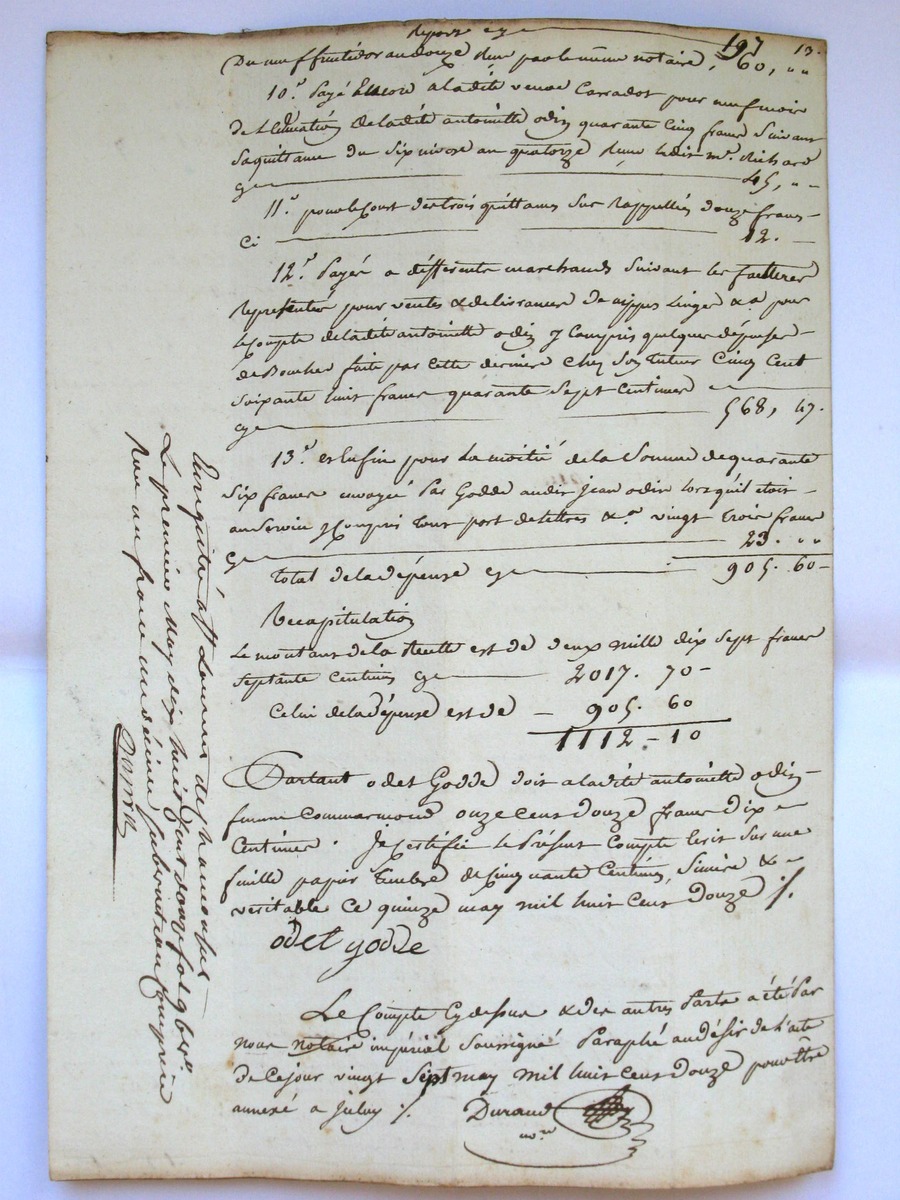 Report cy 197 13.
Du neuf fructidor an douze Reçu par le même notaire, 60, " "
10.° Payé Encore a ladite veuve Carradot pour neuf mois
de de ladite antoinette odin quarante Cinq francs Suivant
Saquittance du Six nivose an quatorze Reçue ledit m.e Richard
cy 45, " -
11.° pour le Cout des trois quittances Sus Rappellées douze francs -
Ci 12. -
12.° Payé a differents marchands Suivant les factures
Representées pour ventes & délivrances de nippes Linges &.a pour
le Compte de ladite antoinette odin y Compris quelques dépenses -
de Bouche faite par cette derniere Chez Son tuteur Cinq Cent
Soixante huit francs quarante Sept Centimes
cy 568, 47.
13.° et Enfin pour la moitié de la Somme de quarante
Six francs envoyée Par Godde audit jean odin lorsquil etoit -
au Service y Compris tous port de lettres &.a vingt trois francs
cy 23. " "
total de la dépense cy 905. 60 -
Recapitulation
Le montant de la Recette est de deux mille dix Sept francs
Septante Centimes cy 2017. 70 -
Celui de la dépense est de - 905. 60
1112 - 10
Partant odet Godde doit a ladite antoinette odin -
femme Commarmond onze cent douze francs Dix
Centimes. Je certifie le Présent Compte Ecrit Sur une
feuille papier timbré de cinquante Centimes, Sincere &
veritable Ce quinze may mil huit cent Douze /.
odet godde
Le Compte Cy dessus & des autres Parts a été Par
nous notaire impérial Soussigné Paraphé au désir de l'acte
de Cejour vingt Sept may mil huit cent douze pour être
annexé a Iceluy /.
Durand
no.re
Enregistré a St
Le premier May dix huit Cent douze fol
Reçu un franc un décime Subvention Comprise